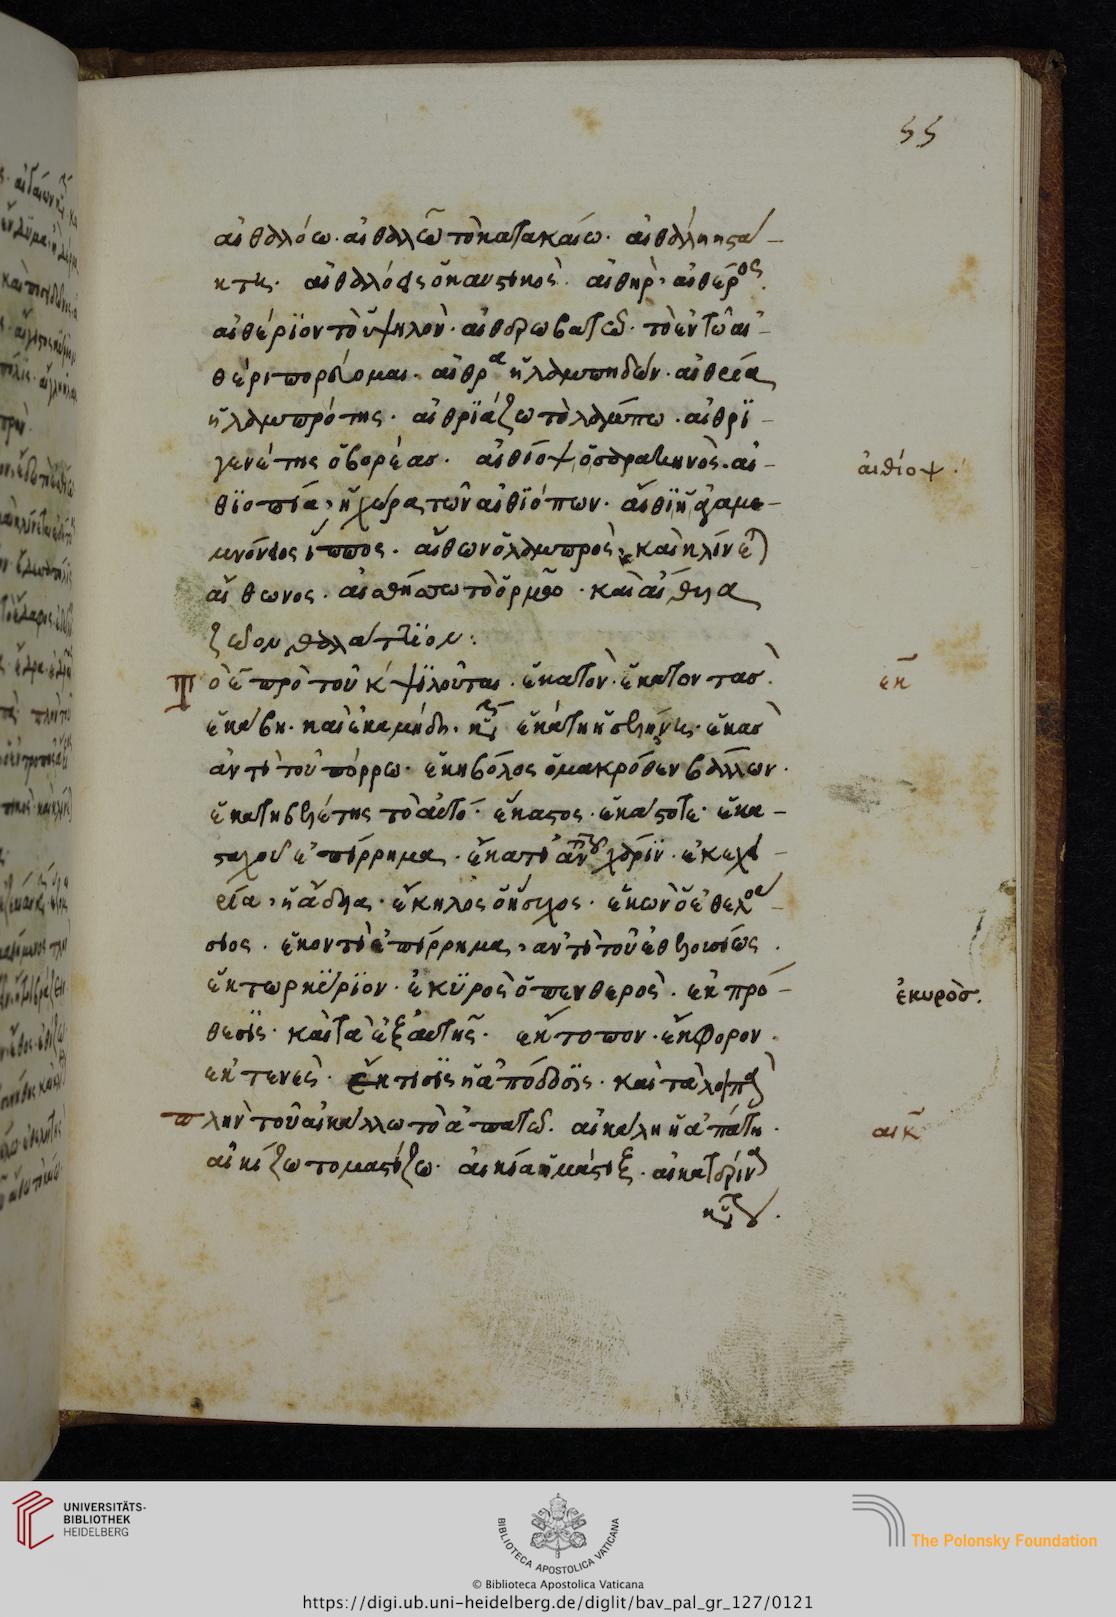 55
αἰθαλόω. αἰθαλῶ τὸ κατακαίω. αἰθάλη ἡ στά-
κτη. αἰθαλόεις ὁ καυστικὸς. αἰθὴρ, αἰθέρος.
αἰθέριον τὸ ὑψηλὸν. αἰθεροβατῶ. τὸ ἐν τῶ αἰ-
θέρι πορεύομαι. αἴθρα ἡ λαμπηδών. αἰθρία
ἡ λαμπρότης. αἰθριάζω τὸ λάμπω. αἰθρϊ-
γενέτης ὁ βορέας. αἰθίοψ, ὁ σαρακηνὸς. αἰ-
θϊοπία, ἡ χώρα τῶν αἰθϊόπων. αἴθϊ ἡ ἀγαμε-
μνόνιος ἵππος. αἴθων ὁ λαμπρὸς, καὶ κλίνε
αἴθωνος. τὸ ὁρμῶ. καὶ αἴθυια
ζῶον θαλάττϊον:
Τὸ ε πρὸ τοῦ κ ψϊλοῦται. ἑκατὸν. ἑκατοντὰς.
ἑκάβη. καὶ ἑκαμήδη. ἑκάτη ἡ σελήνη. ἑκὰς
ἀντὶ τοῦ πόρρω. ἑκηβόλος ὁ μακρόθεν βάλλων.
ἑκατηβελέτης τὸ αὐτό. ἕκαστος. ἑκάστοτε. ἑκα-
σταχοῦ ἐπίρρημα. ἕκατι ἀντὶ τοῦ χάριν. ἐκεχει-
ρία, ἡ ἄδεια. ἕκηλος ὁ ἥσυχος. ἑκὼν ὁ ἐθελού-
σιος. ἑκοντὶ ἐπίρρημα, ἀντὶ τοῦ ἐθελουσίως.
ἕκτωρ κύριον. ἑκϋρὸς ὁ πενθερὸς. ἐκ πρό-
θεσϊς. καὶ τὰ ἐξ αὐτῆς. ἔκτοπον. ἔκφορον.
ἐκτενὲς. ἔκτισϊς ἡ ἀπόδοσϊς. καὶ τὰ λοιπὰ
πλὴν τοῦ αἰκάλλω τὸ ἀπατῶ. αἰκάλη ἡ ἀπάτη.
αἰκίζω το μαστίζω. αἰκία ἡ μάστιξ.
αἰθίοψ.
ἐκ
ἑκυρὸσ.
αικ
UNIVERSITÄTS-
BIBLIOTHEK
HEIDELBERG
BIBLIOTECA APOSTOLICA VATICANA
The Polonsky Foundation
© Biblioteca Apostolica Vaticana
https://digi.ub.uni-heidelberg.de/diglit/bav_pal_gr_127/0121